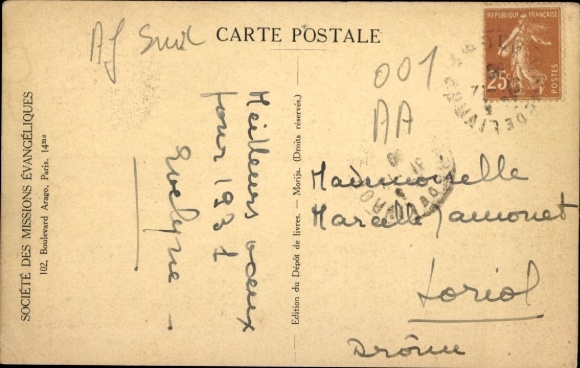 Af Sud
CARTE POSTALE
001
AA
REPUBLIQUE FRANÇAISE
25c
POSTES
SOCIÉTÉ DES MISSIONS ÉVANGÉLIQUES
102, Boulevard Arago, Paris. 14me
Meilleurs voeux
pour 1931
Evelyne —
Edition du Dépôt de livres. — Morija. (Droits réservés.)
Mademoiselle
Marcelle Jamonet
Loriol
Drôme